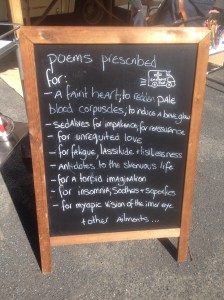 poems prescribed
for:
- A faint heart, to redden PALE
blood corpuscles, to induce a brave glow
- Sedatives for impatience, for reassurance
- for unrequited love
- for fatigue, lassitude + listlessness
- Antidotes to the strenuous life
- for a torpid imagination
- for insomnia, Soothers + soporifics
- for myopic vision of the inner eye
+ other ailments...